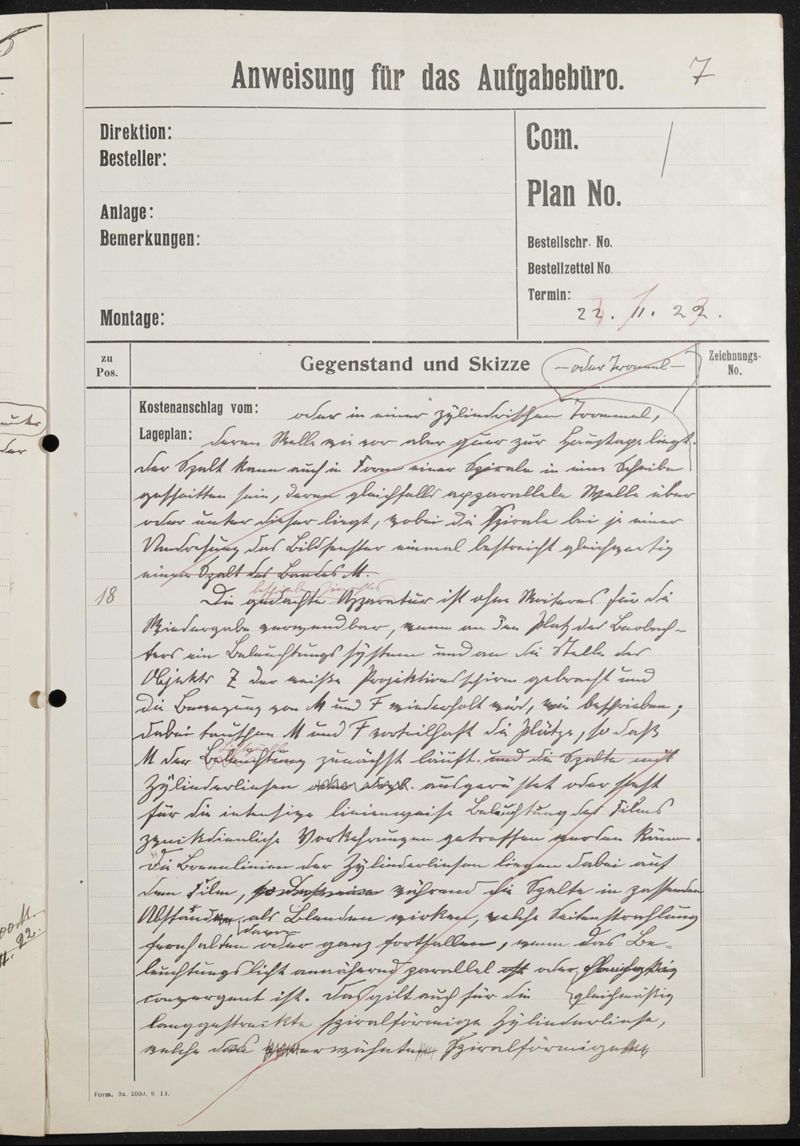 Anweisung für das Aufgabebüro.
7
Direktion:
Besteller:
Anlage:
Bemerkungen:
Montage:
Com.
Plan No.
Bestellschr. No.
Bestellzettel No.
Termin:
22. 11. 22.
zu Pos.
Gegenstand und Skizze
— oder Trommel —
Zeichnungs-No.
Kostenanschlag vom: oder in einer zylindrischen Trommel,
Lageplan: deren Welle wie vor aber quer zur Hauptaxe liegt.
Der Spalt kann auch in Form einer Spirale in eine Scheibe
geschnitten sein, deren gleichfalls axparallele Welle über
oder unter dieser liegt, wobei die Spirale bei je einer
Umdrehung das Bildfenster einmal bestreicht gleichwertig
einem Spalt des Bandes M.
18
Die gedachte Apparatur ist ohne Weiteres für die
Wiedergabe verwendbar, wenn an den Platz des Beobach-
ters ein Beleuchtungssystem und an die Stelle des
Objekts Z der weiße Projektionsschirm gebracht und
die Bewegung von M und F wiederholt wird, wie beschrieben;
dabei tauschen M und F vorteilhaft die Plätze, so daß
M der Beleuchtung zunächst läuft und die Spalte mit
Zylinderlinsen ausgerüstet oder sonst
für die intensive linienweise Beleuchtung des Films
zweckdienliche Vorkehrungen getroffen werden können.
Die Brennlinien der Zylinderlinsen liegen dabei auf
dem Film, während die Spalte in passenden
Abständen als Blenden wirken, welche Seitenstrahlung
fernhalten oder ganz fortfallen, wenn das Be-
leuchtungslicht annähernd parallel oder
convergent ist. Das gilt auch für die gleichmäßig
langgestreckte spiralförmige Zylinderlinse,
welche das erwähnte spiralförmige
Form. 3a. 2000. 6. 13.